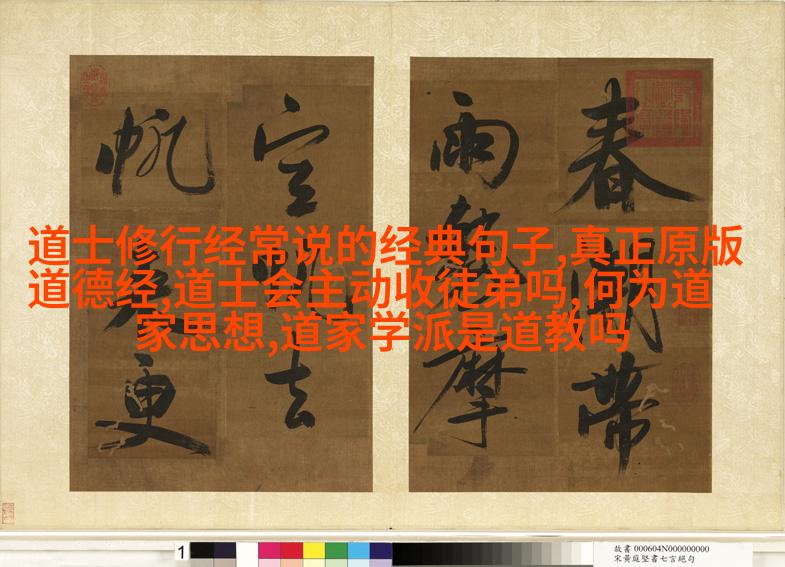 道士修行经常说的经典句子,真正原版
道德经,道士会主动收徒弟吗,何为道
家思想,道家学派是道教吗
春帶
雨摩
空去
帆更
1
故書 000604N000000000
宋黃庭堅書七言絕句